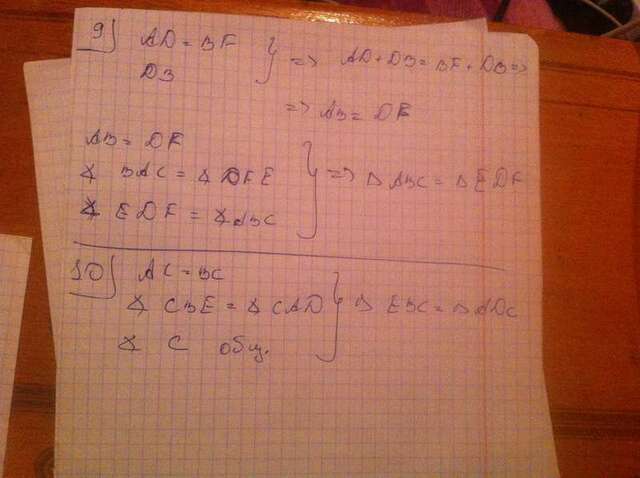 9) AD = BF } => AD + DB = BF + DB =>
DB
=> AB = DF
AB = DF
∡ BAC = ∡ DFE } => △ ABC = △ EDF
∡ EDF = ∡ ABC
10) AC = BC
∡ CBE = ∡ CAD } △ EBC = △ ADC
∡ C общ.